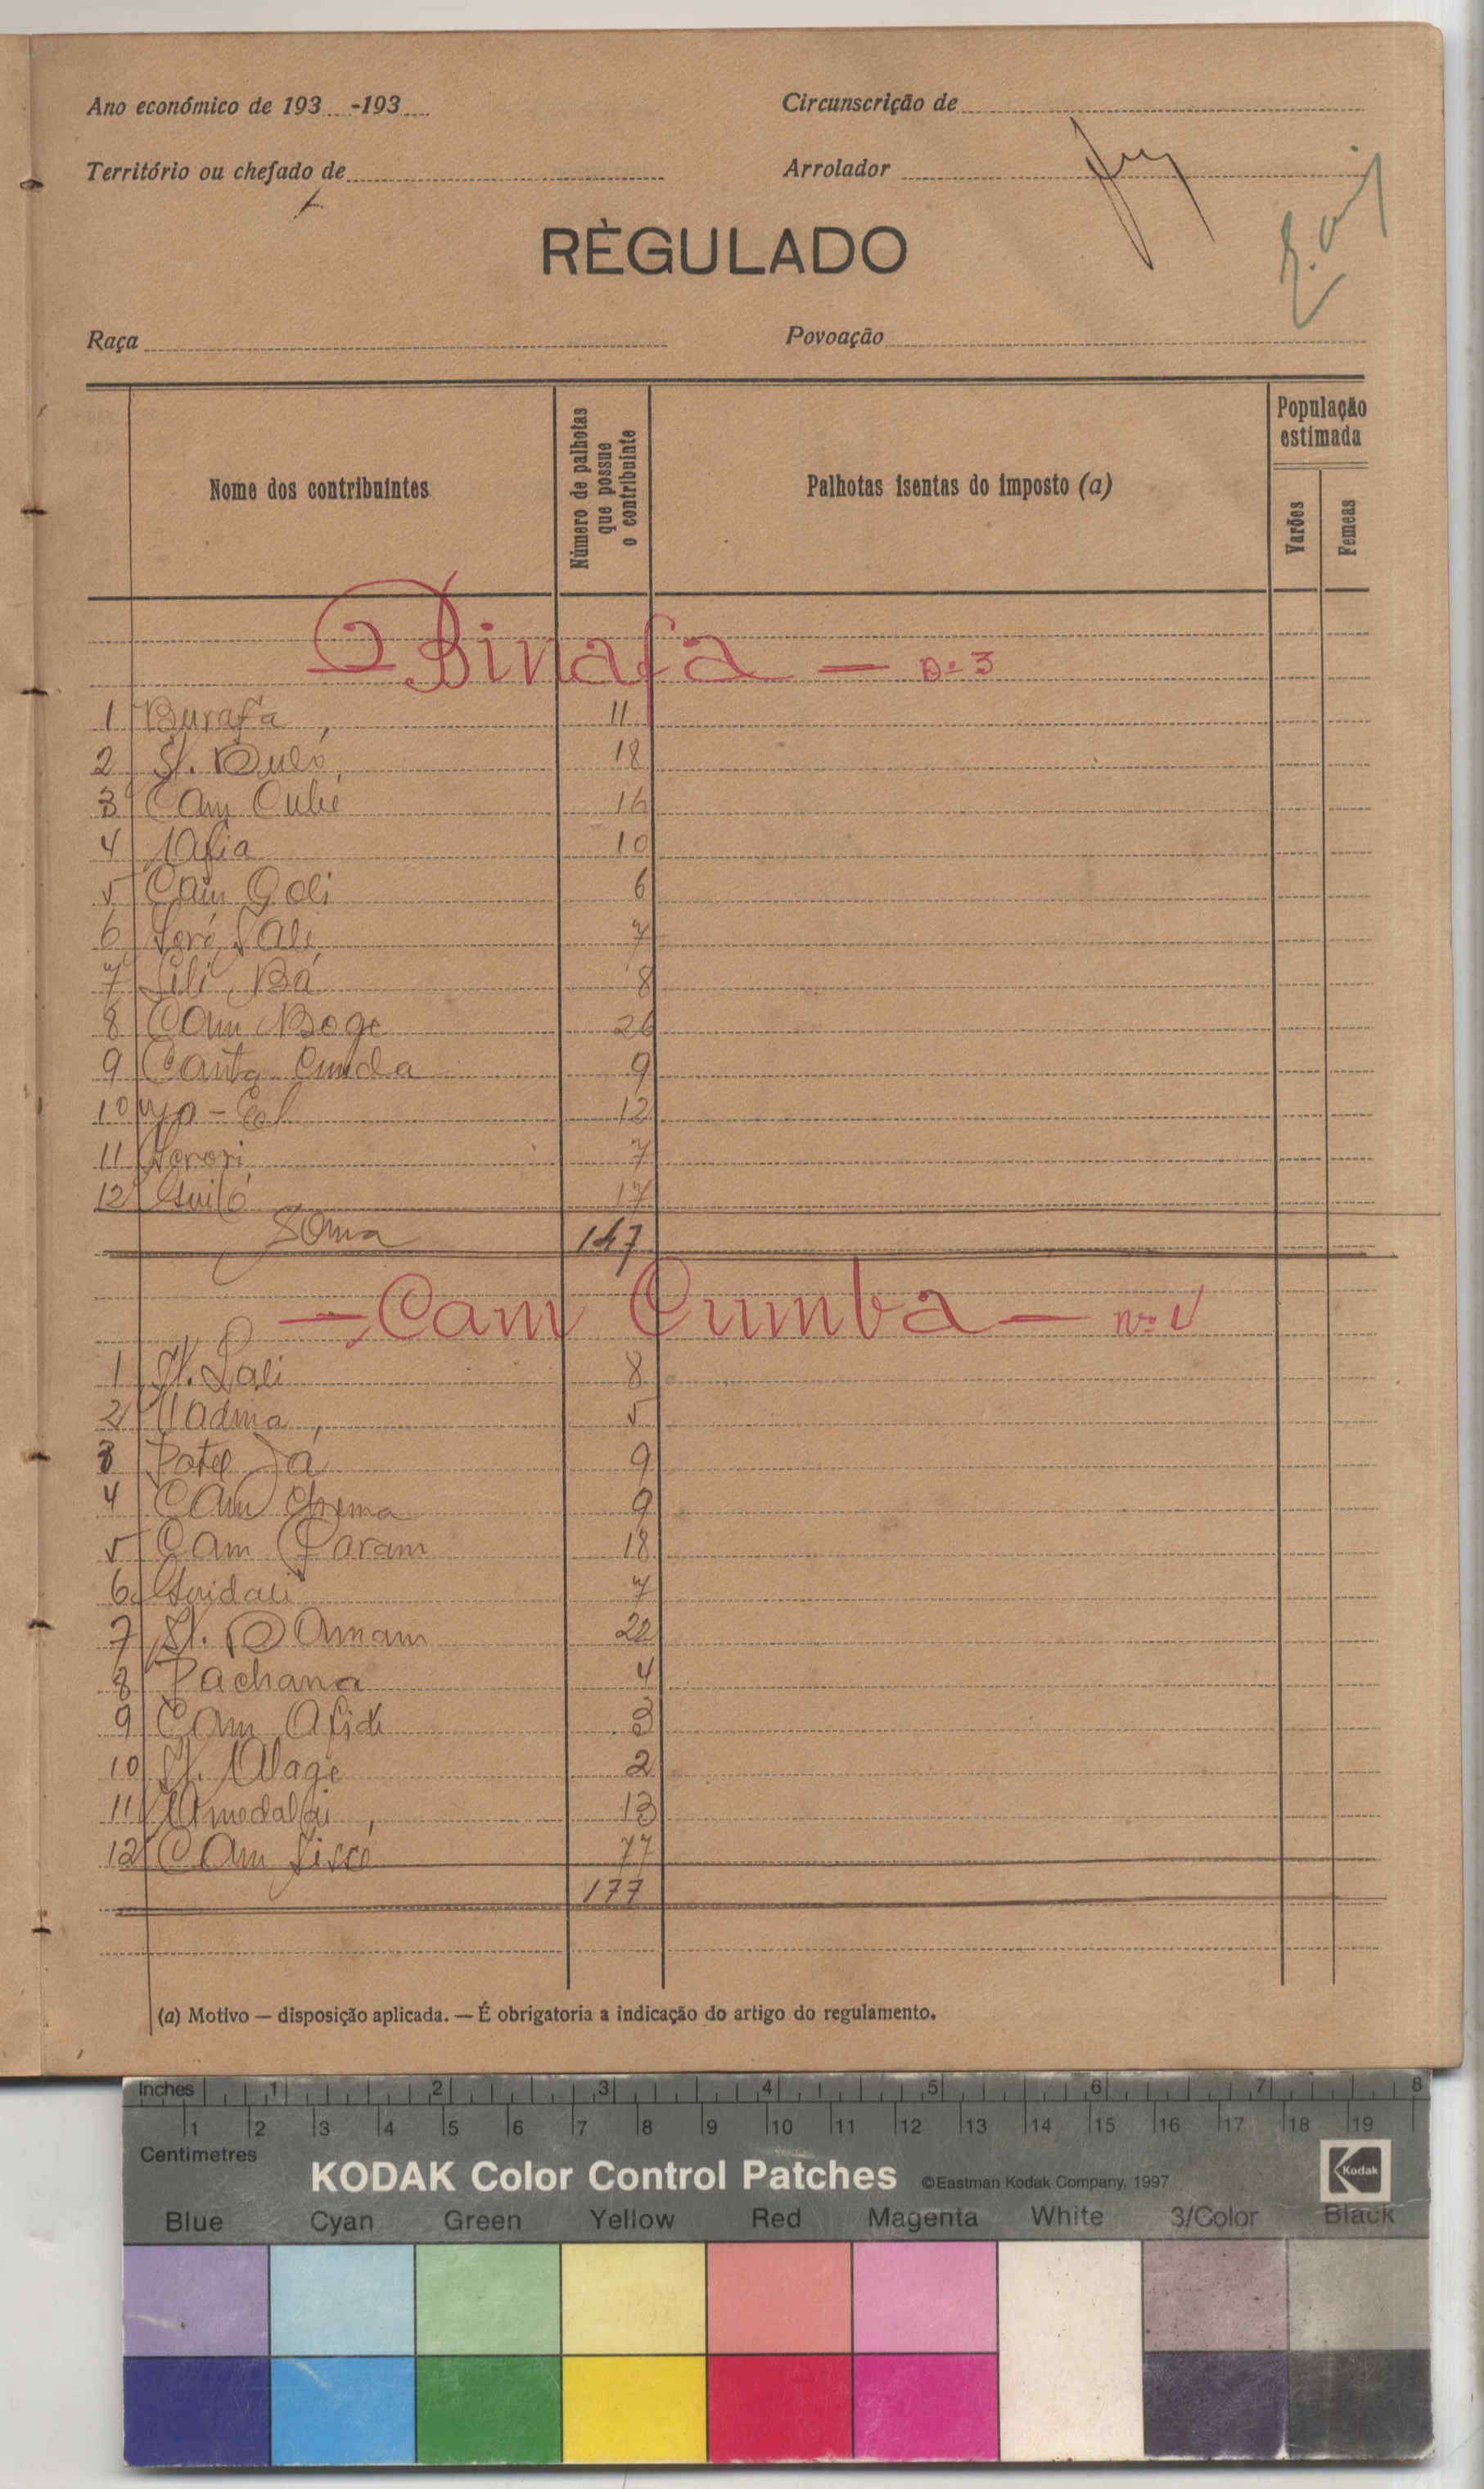 Ano económico de 193 -193
Circunscrição de
Território ou chefado de
Arrolador
RÈGULADO
Raça
Povoação
Nome dos contribuintes
Número de palhotas que possue o contribuinte
Palhotas isentas do imposto (a)
População estimada
Varões
Femeas
Binafa — nº 3
1 Burafa 11
2 St. 18
3 Cam Cubé 16
4 Mafia 10
5 Cam Goli 6
6 7
7 Lili Bá 8
8 Cam Boge 26
9 Canta Cunda 9
10 12
11 7
12 Guiló 17
Soma 147
— Cam Cumba — nº
1 St. Lali 8
2 Uadma 5
3 Patê Já 9
4 Cam 9
5 Cam Param 18
6 Guidali 7
7 St. 22
8 Pachana 4
9 Cam Alidi 3
10 St. Alage 2
11 Amedalai 13
12 Cam Sissé 77
177
(a) Motivo — disposição aplicada. — É obrigatoria a indicação do artigo do regulamento.
Inches 1 2 3 4 5 6 7 8
1 2 3 4 5 6 7 8 9 10 11 12 13 14 15 16 17 18 19
Centimetres
KODAK Color Control Patches ©Eastman Kodak Company, 1997 Kodak
Blue Cyan Green Yellow Red Magenta White 3/Color Black